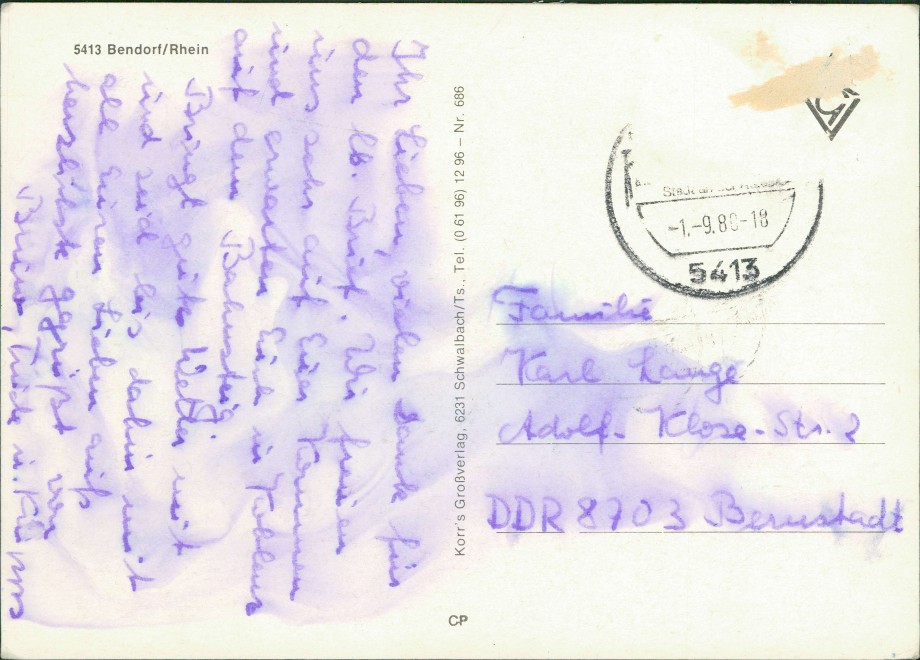 5413 Bendorf/Rhein
Ihr Lieben, vielen Dank für
den lb. Brief. Wir freuen
uns sehr auf Euer Kommen
und erwarten Euch in Koblenz
auf dem Bahnsteig.
Bringt gutes Wetter mit
und seid bis dahin mit
all Euren Lieben aufs
herzlichste gegrüßt von
Bruno, Trude u.
Korr's Großverlag, 6231 Schwalbach/Ts., Tel. (0 61 96) 12 96 – Nr. 686
CP
-1.-9.86-18
5413
Familie
Karl Lange
Adolf-Klose-Str. 2
DDR 8703 Bernstadt